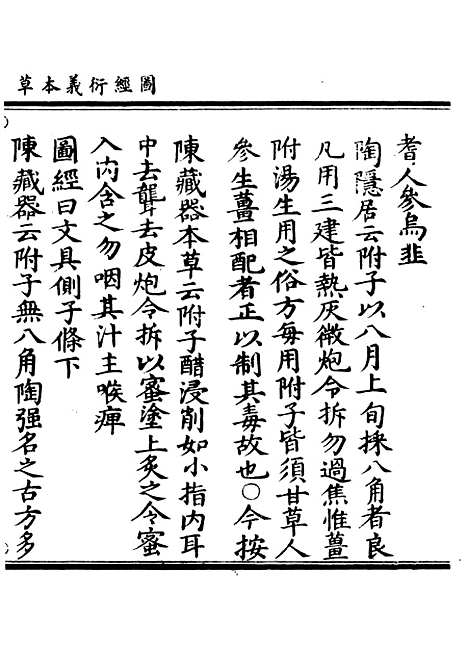 圖經衍義本草
耆人參烏韭
陶隱居云附子以八月上旬採八角者良
凡用三建皆熱灰微炮令拆勿過焦惟薑
附湯生用之俗方每用附子皆須甘草人
參生薑相配者正以制其毒故也○今按
陳藏器本草云附子醋浸削如小指內耳
中去聾去皮炮令拆以蜜塗上炙之令蜜
入內含之勿咽其汁主喉痺
圖經曰文具側子條下
陳藏器云附子無八角陶强名之古方多